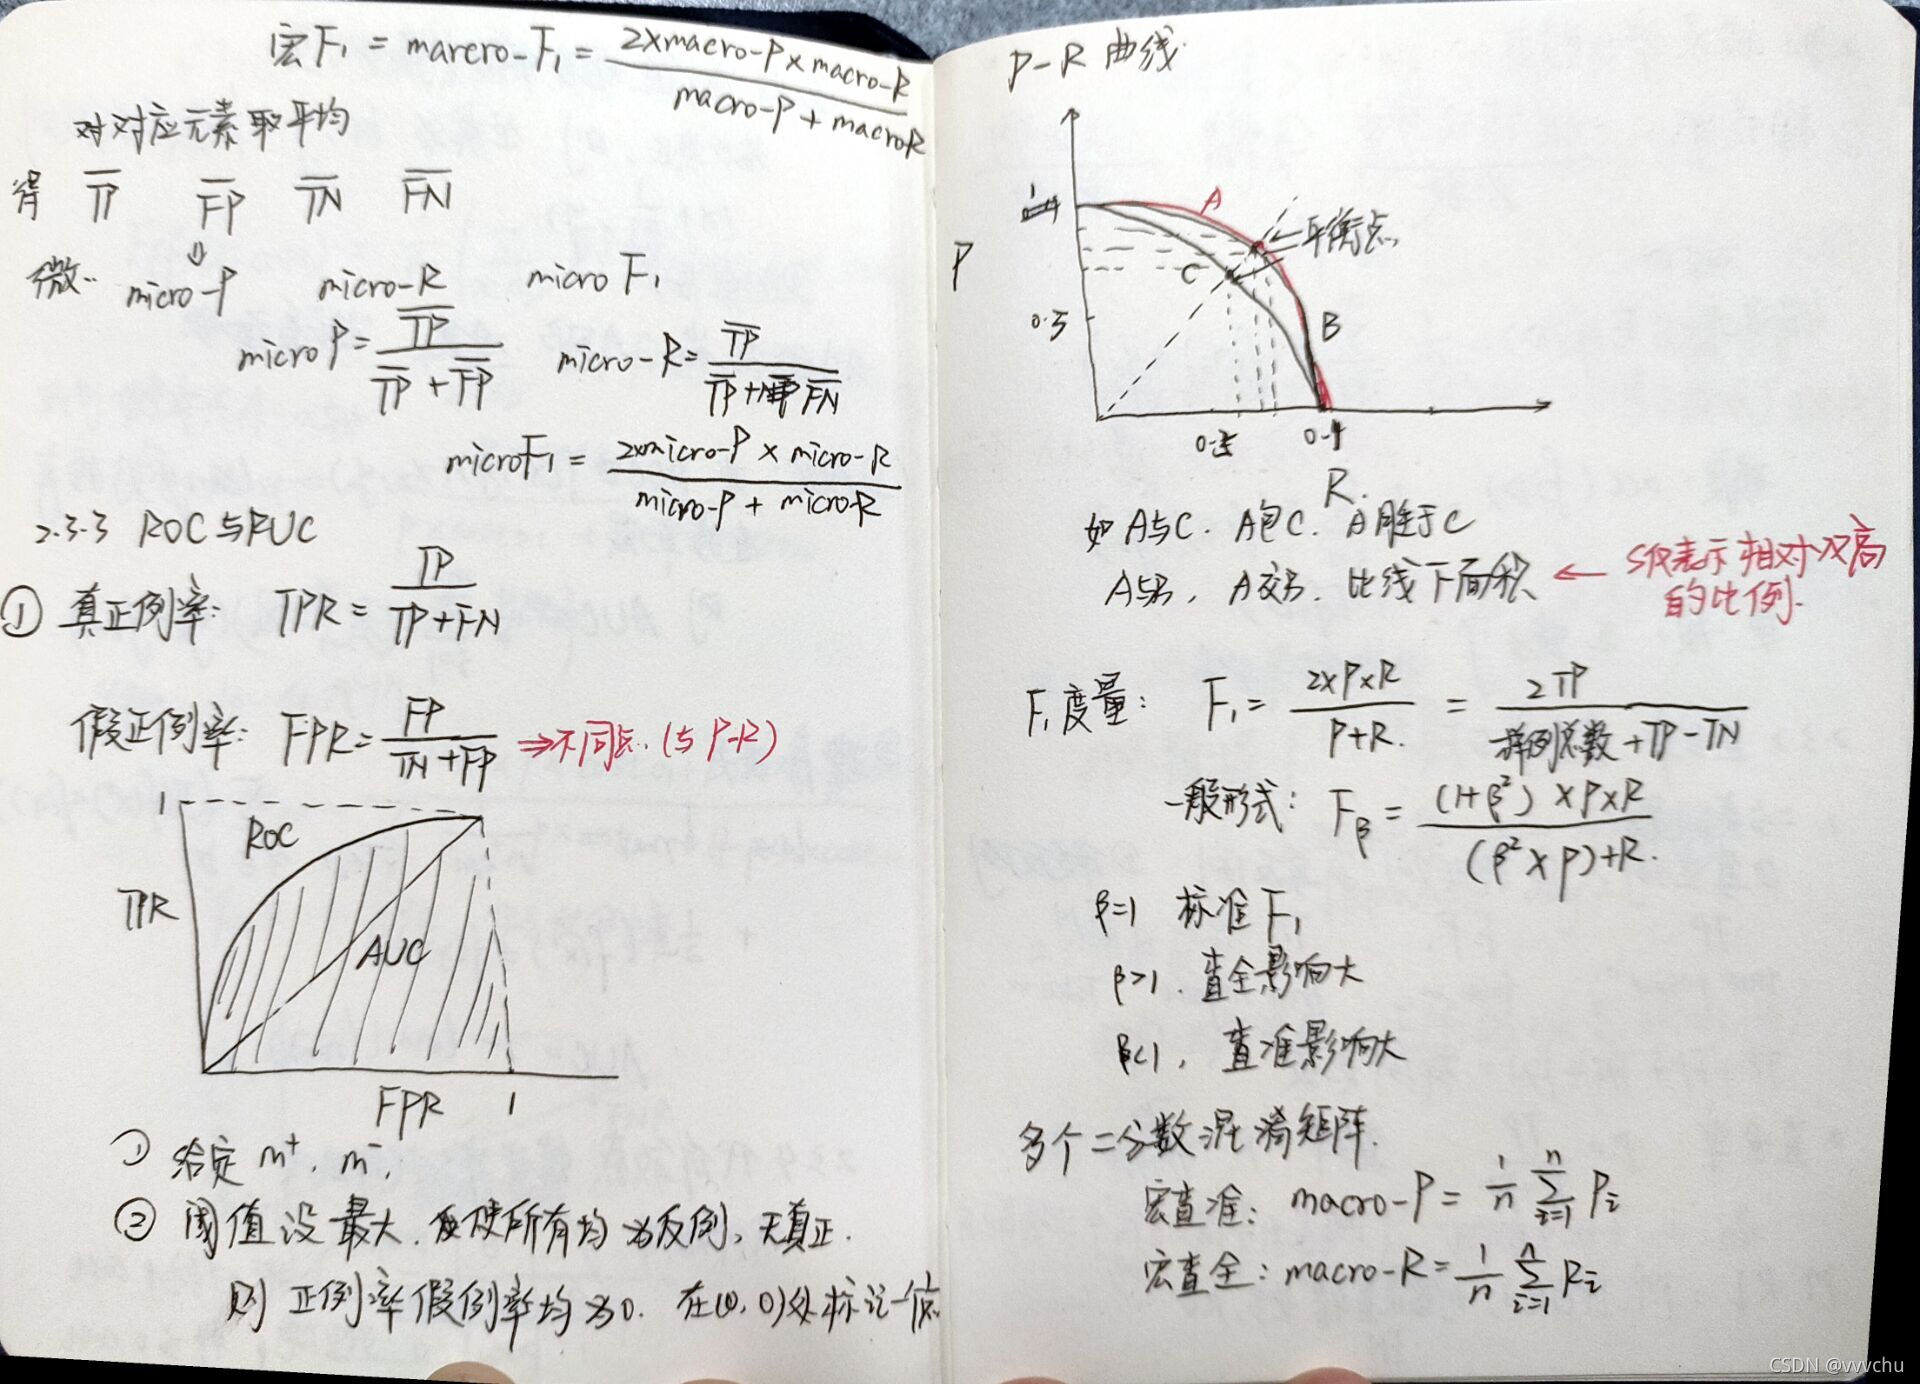 宏F₁ = marcro-F₁ = 2×macro-P×macro-R / macro-P + macroR
对对应元素取平均
得 T̅P̅ F̅P̅ T̅N̅ F̅N̅
⇓
微.. micro-P micro-R micro F₁
micro P = T̅P̅ / T̅P̅ + F̅P̅ micro-R = T̅P̅ / T̅P̅ + F̅N̅
microF₁ = 2×micro-P × micro-R / micro-P + micro-R
2.3.3 ROC与RUC
① 真正例率: TPR = TP / TP+FN
假正例率: FPR = FP / TN+FP ⇒不同点.(与P-R)
1
ROC
TPR
AUC
FPR 1
① 给定 m⁺, m⁻,
② 阈值设最大, 使所有均为反例, 无真正.
则 正例率假例率均为0. 在(0,0)处标记一个点
P-R 曲线
1
A
←平衡点
P
C
0.5
B
R.
如 A与C. A包C. A胜于C
A与B, A交B. 比线下面积 ← S仅表示相对双高
的比例.
F₁度量: F₁ = 2×P×R / P+R. = 2TP / 样例总数+TP-TN
一般形式: Fβ = (1+β²)×P×R / (β²×P)+R.
β=1 标准F₁
β>1. 查全影响大
β<1, 查准影响大
多个二分数混淆矩阵.
宏查准: macro-P = 1/n ∑ⁿᵢ₌₁ Pᵢ
宏查全: macro-R = 1/n ∑ⁿᵢ₌₁ Rᵢ
CSDN @vvvchu